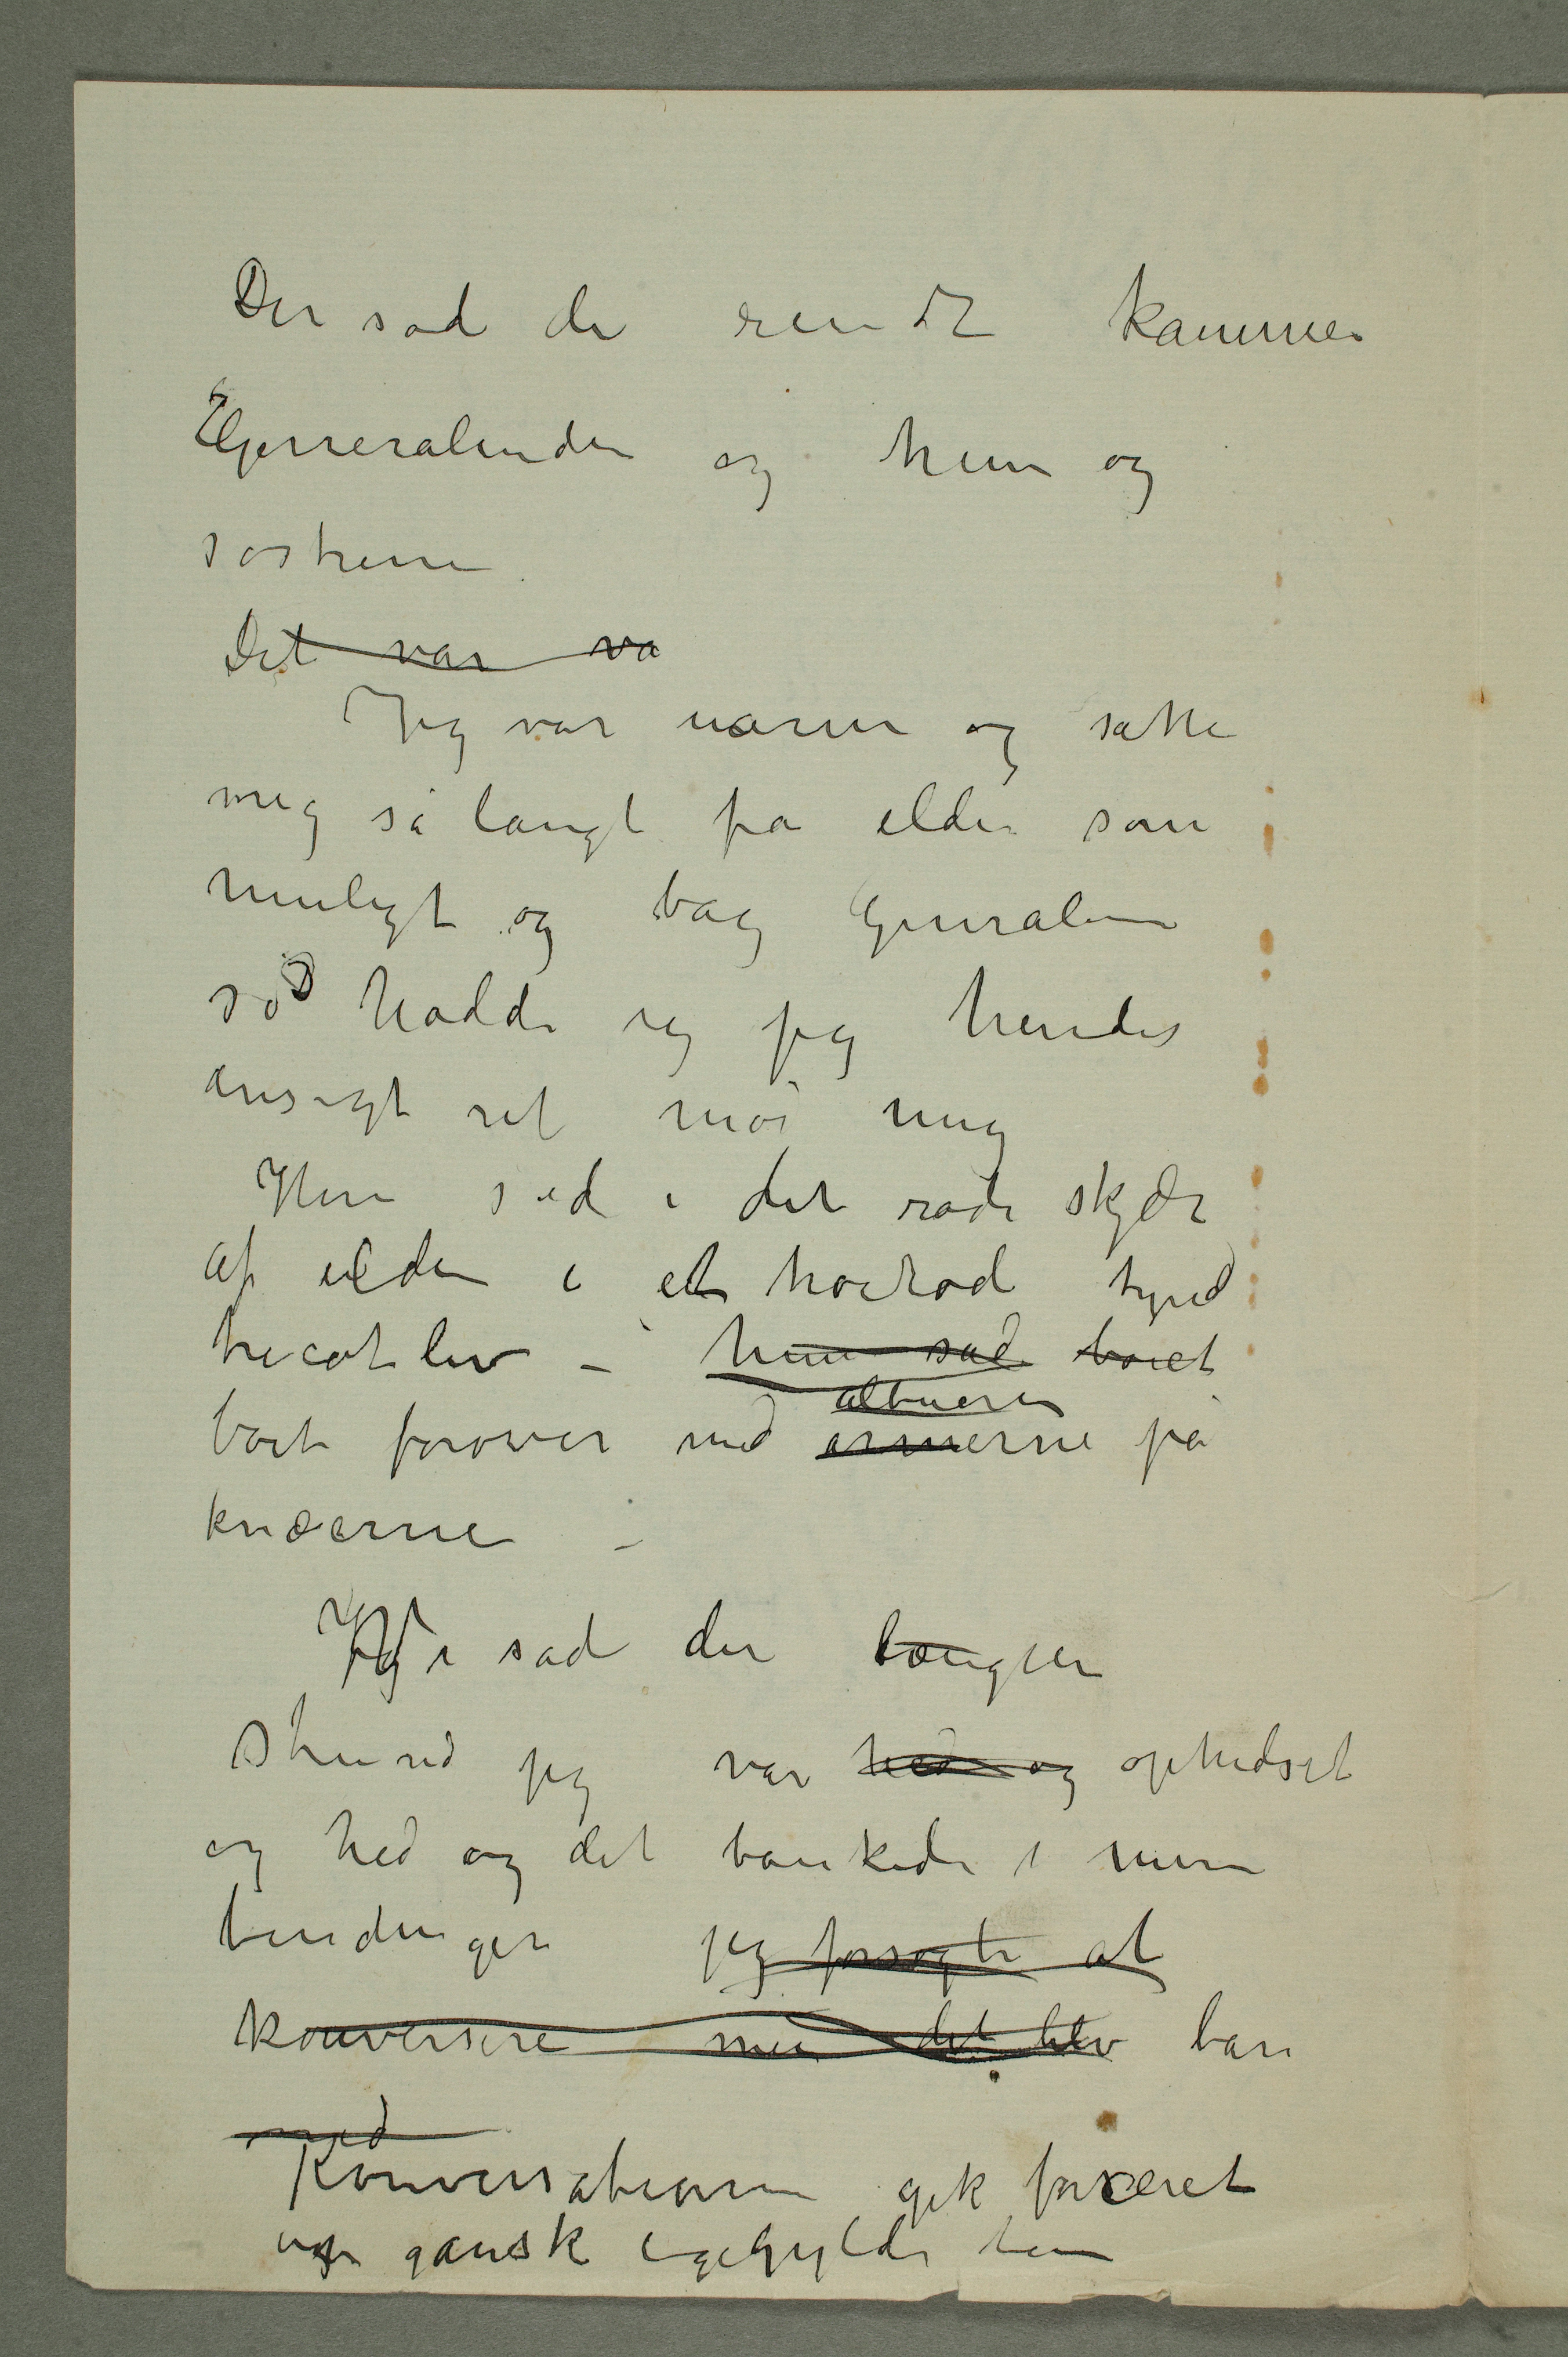 Der sad de rundt kaminen
Generalinden og hun og
søstrene.
Det var va
Jeg var varm og satte
mig så langt fra ilden som
muligt og bag Generalin
så hadde jeg hendes
ansigt ret mod mig
Hun sad i det røde skjær
af ilden i et høirød tynd
tricotliv – hun sad bøiet
albuerne
bøiet forover med armerne på
knæerne –
Vi sad der længere
stund jeg var hed og ophidset
og hed og det bankede i mine
tindinger jeg forsøgte at
konversere men det blev bare
med
Konversationen gik forceret
om ganske ligegyldige ting